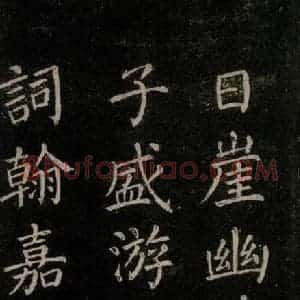 目崖幽
子盛游
詞翰嘉
shufazidiao.com